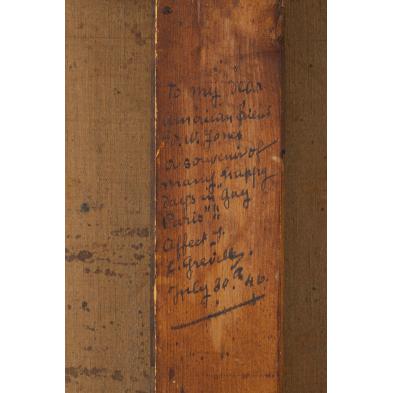 To my dear
american friend
W. Jones
a souvenir of
many happy
days in "gay
Paris"!!
Affect
L. Greville,
July 30th 46.